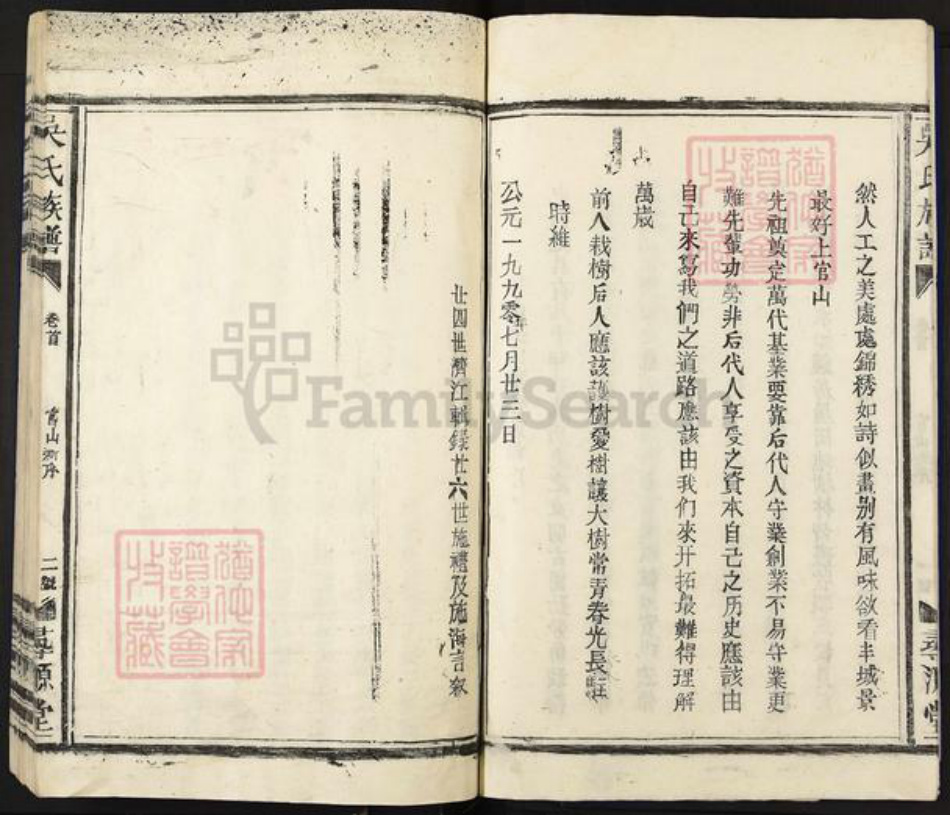 然人工之美處處錦綉如詩似畫别有風味欲看丰城景
最好上官山
先祖奠定萬代基業要靠后代人守業創業不易守業更
難先輩功勞非后代人享受之資本自己之历史應該由
自己來寫我們之道路應該由我們來开拓最難得理解
萬歲
前人栽樹后人應該護樹愛樹讓大樹常青春光長旺
時維
公元一九九零年七月廿三日
廿四世濟江輯錄廿六世施禮及施海言叙
吳氏族譜
卷首
官山
序
二號
尋源堂
吳氏族譜
尋源堂
譜學會
收藏
譜學會
收藏
FamilySearch